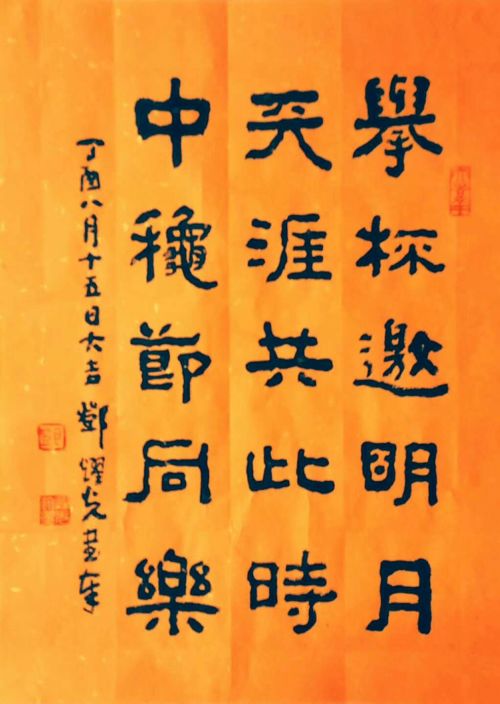 舉杯邀明月
天涯共此時
中龝節同樂
丁酉八月十五日大吉 鄧耀光書奉